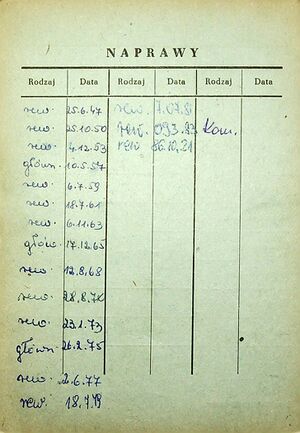 NAPRAWY
Rodzaj Data Rodzaj Data Rodzaj Data
rew. 25.6.47 rew. 7.07.81
rew. 25.10.50 rew. 093.83 Kom.
rew. 4.12.53 rew 06.10.21
główn. 10.5.57
rew. 6.7.59
rew. 18.7.61
rew. 6.11.63
głów. 17.12.65
rew. 12.8.68
rew. 28.8.7
rew. 23.1.73
główn. 26.2.75
rew. 2.6.77
rew. 18.7.79